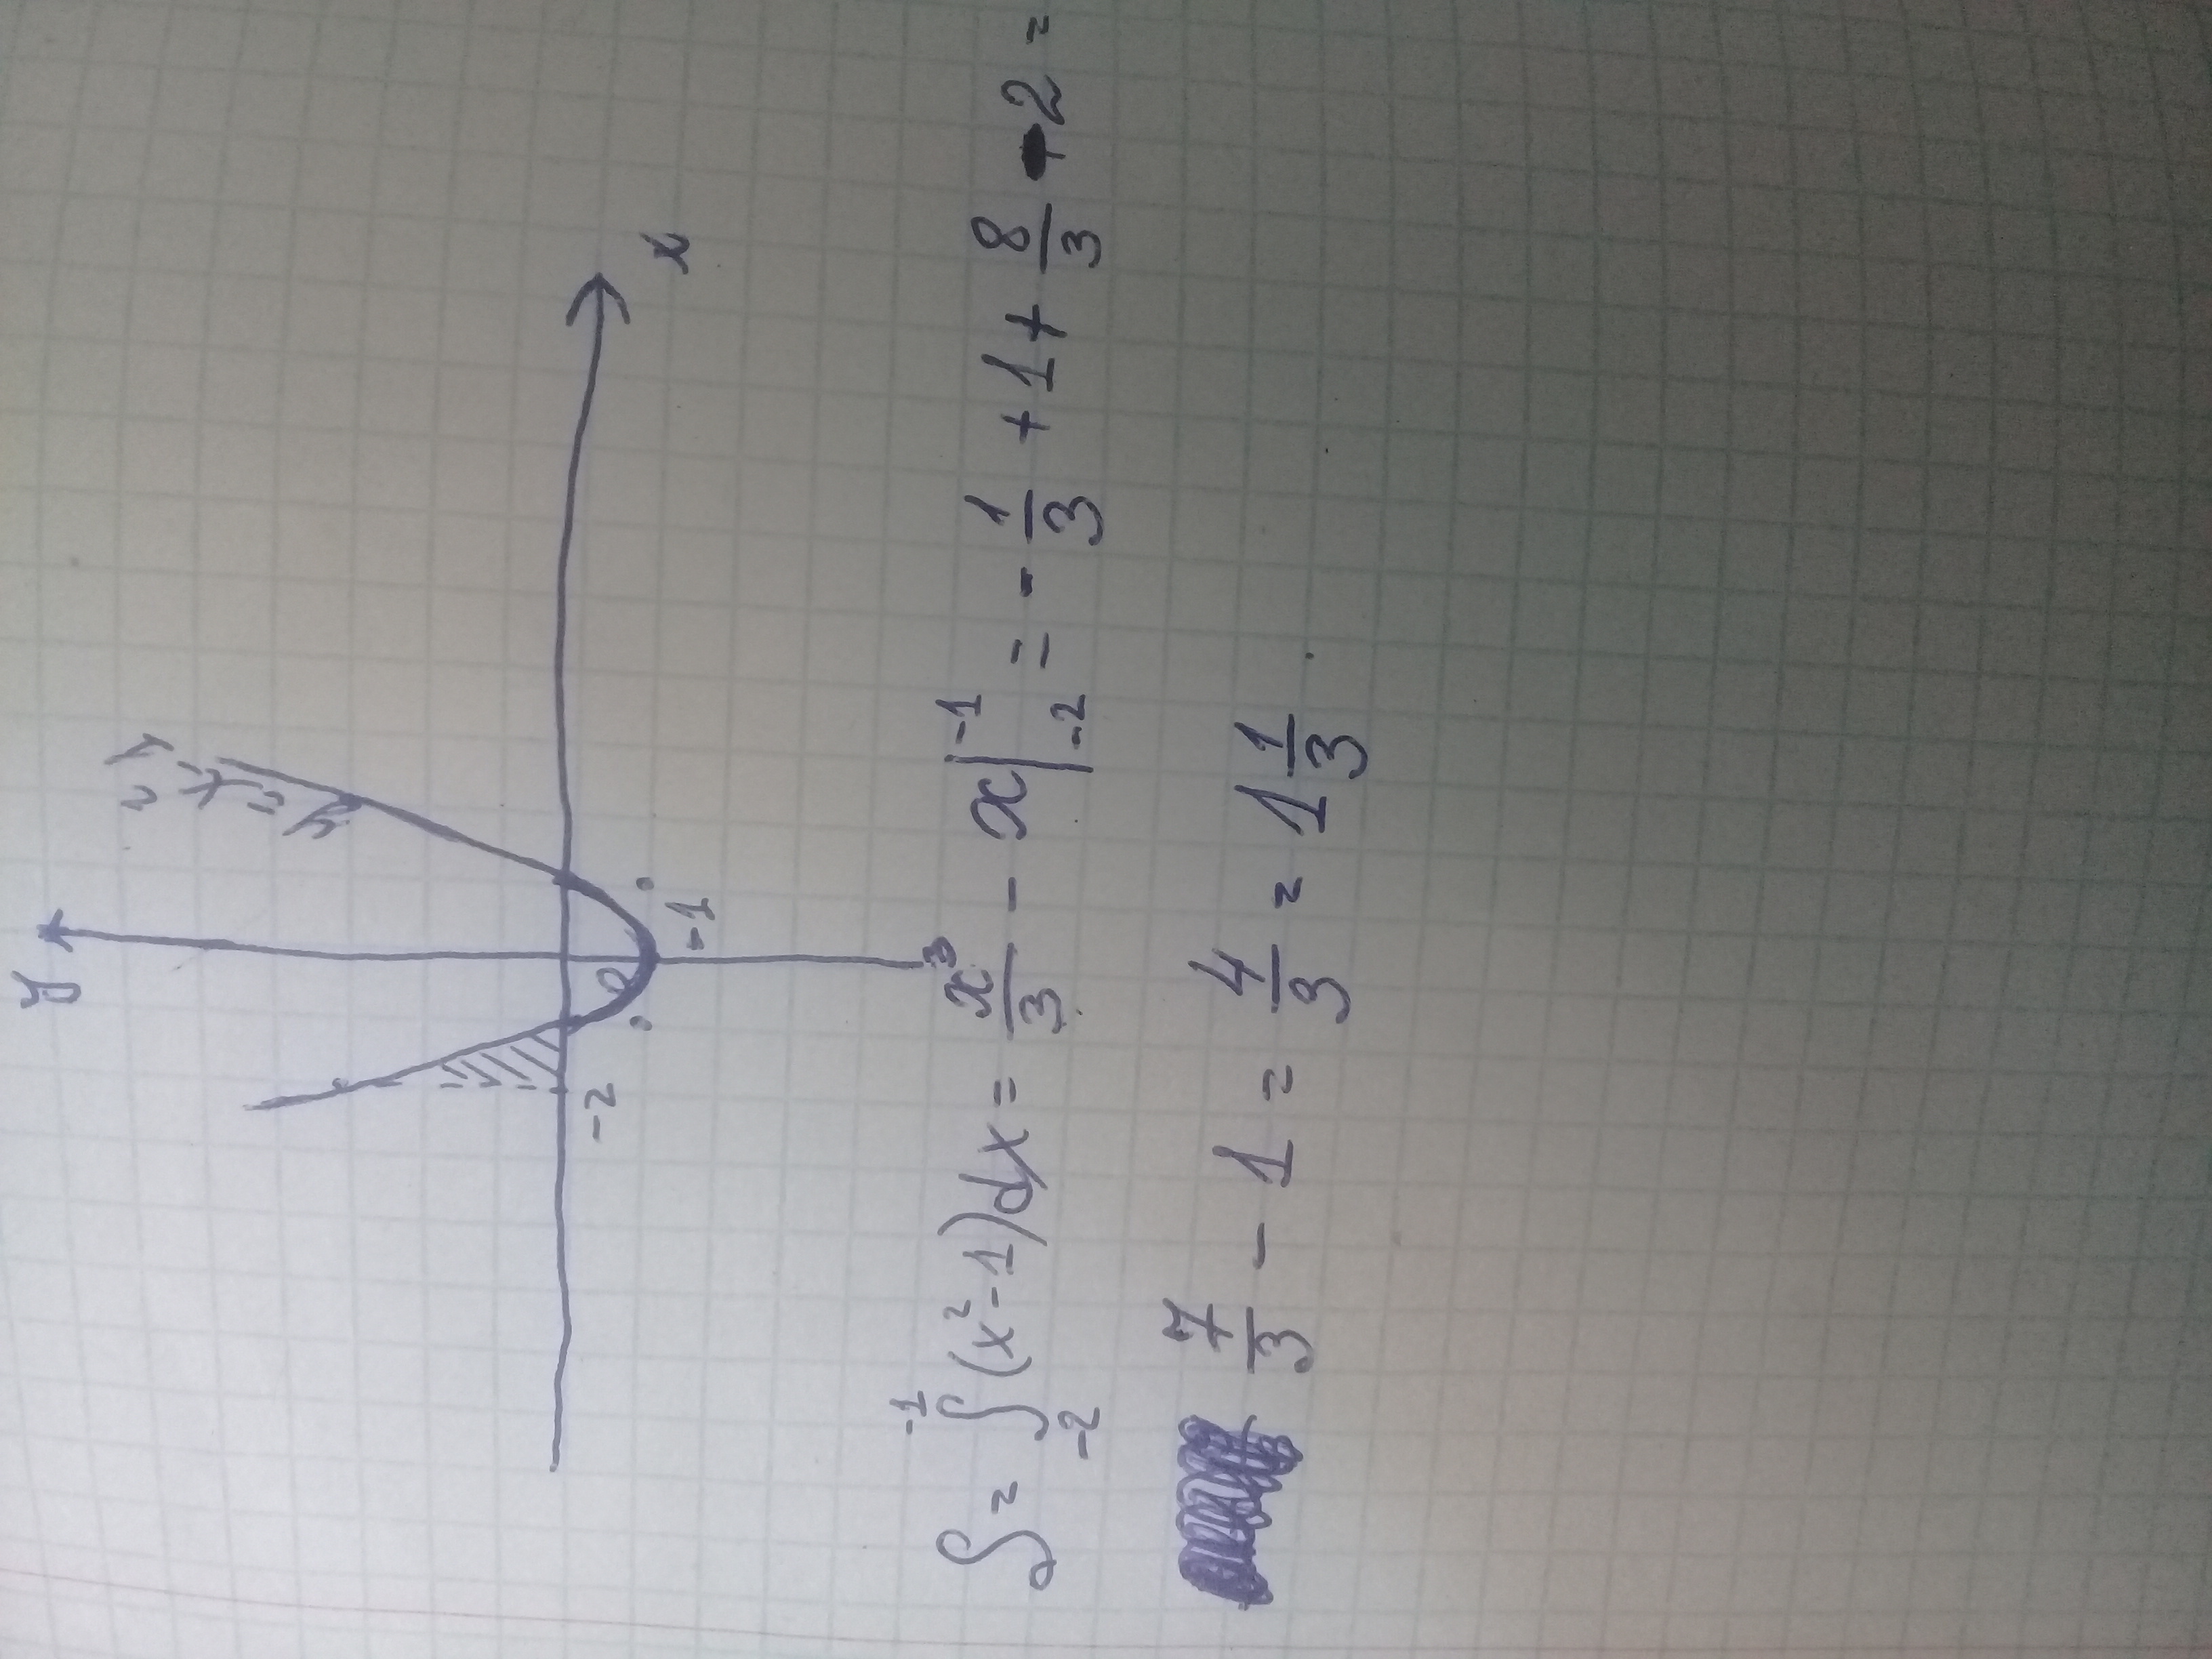 y
y=x²-1
x
-2
0
-1
S = ∫₋₂⁻¹ (x²-1)dx = x³/3 - x |₋₂⁻¹ = - 1/3 + 1 + 8/3 - 2 =
7/3 - 1 = 4/3 = 1 1/3